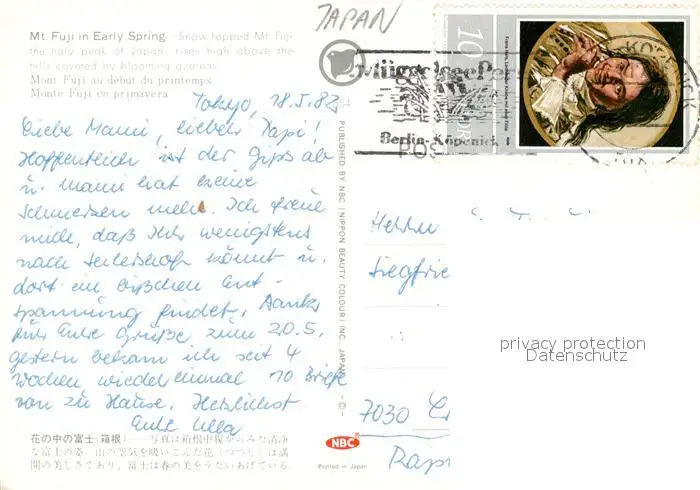 JAPAN
Mt. Fuji in Early Spring - Snow topped Mt. Fuji
the holy peak of Japan rises high above the
hills covered by blooming azoleas.
Mont Fuji au début du printemps
Monte Fuji en primavera
Tokyo, 18.5.82
Liebe Mami, lieber Papi!
Hoffentlich ist der Gips ab
u. Mami hat keine
Schmerzen mehr. Ich freue
mich, daß Ihr wenigstens
nach könnt u.
dort ein bißchen Ent-
spannung findet. Danke
für Eure Grüße zum 20.5.
gestern bekam ich seit 4
Wochen wieder einmal 10 Briefe
von zu Hause. Herzlichst
Eure Ulla
花の中の富士(箱根)——写真は箱根中腹からみた清浄
な富士の姿。山の空気を吸いこんだ花(つつじ)は満
開の美しさであり、富士は春の美をうたいあげている。
PUBLISHED BY NBC (NIPPON BEAUTY COLOUR) INC. JAPAN
NBC
Printed in Japan
10
DDR
Müggelsee
Berlin-Köpenick 1
Herrn
Siegfrie
7030
privacy protection
Datenschutz